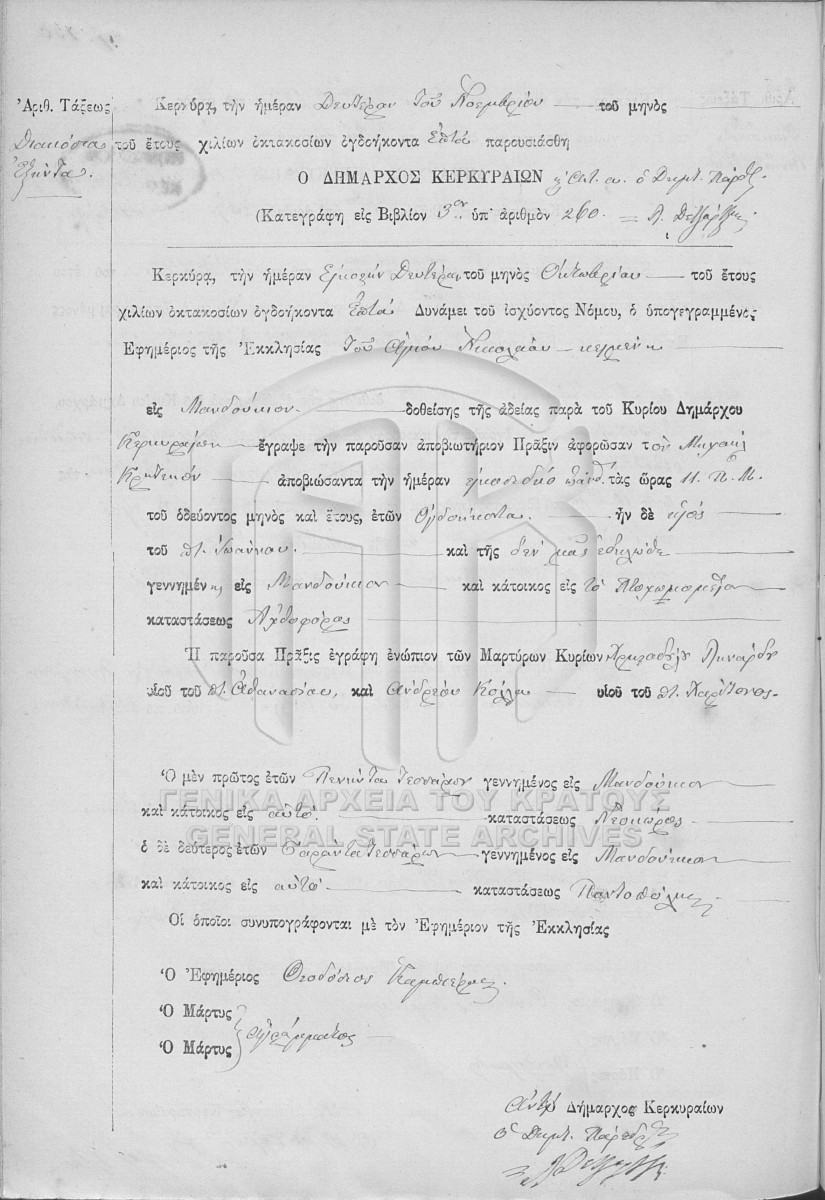 Ἀριθ. Τάξεως
Διακόσια
Ἑξήντα.
Κερκύρᾳ, τὴν ἡμέραν Δευτέραν τοῦ Νοεμβρίου τοῦ μηνὸς
τοῦ ἔτους χιλίων ὀκτακοσίων ὀγδοήκοντα Ἑπτά παρουσιάσθη
Ο ΔΗΜΑΡΧΟΣ ΚΕΡΚΥΡΑΙΩΝ ὁ Δημτ. Πάρεδ.
(Κατεγράφη εἰς Βιβλίον 3ον ὑπ' ἀριθμὸν 260.
Κερκύρᾳ, τὴν ἡμέραν Εἰκοστὴν Δευτέραν τοῦ μηνὸς Ὀκτωβρίου τοῦ ἔτους
χιλίων ὀκτακοσίων ὀγδοήκοντα Ἑπτά Δυνάμει τοῦ ἰσχύοντος Νόμου, ὁ ὑπογεγραμμένος
Ἐφημέριος τῆς Ἐκκλησίας τοῦ Ἁγίου Νικολάου κειμένη
εἰς Μανδούκιον δοθείσης τῆς ἀδείας παρὰ τοῦ Κυρίου Δημάρχου
Κερκυραίων ἔγραψε τὴν παροῦσαν ἀποβιωτήριον Πρᾶξιν ἀφορῶσαν τὸν Μιχαήλ
Κρητικόν ἀποβιώσαντα τὴν ἡμέραν εἰκοσιδύο τὰς ὥρας 11. Π. Μ.
τοῦ ὁδεύοντος μηνὸς καὶ ἔτους, ἐτῶν Ὀγδοήκοντα. ἦν δὲ υἱός
τοῦ ποτ. Ἰωάννου. καὶ τῆς δέν μας ἐδηλώθη
γεννημένος εἰς Μανδούκιον καὶ κάτοικος εἰς τό Πτωχοκομεῖον
καταστάσεως Ἀχθοφόρος
Ἡ παροῦσα Πρᾶξις ἐγράφη ἐνώπιον τῶν Μαρτύρων Κυρίων
υἱοῦ τοῦ ποτ. Ἀθανασίου, καὶ Ἀνδρέου υἱοῦ τοῦ ποτ. Χαρίτονος
Ὁ μὲν πρῶτος ἐτῶν Πενήντα τεσσάρων γεννημένος εἰς Μανδούκιον
ΓΕΝΙΚΑ ΑΡΧΕΙΑ ΤΟΥ ΚΡΑΤΟΥΣ
καὶ κάτοικος εἰς αὐτό. καταστάσεως Νεωκόρος
GENERAL STATE ARCHIVES
ὁ δὲ δεύτερος ἐτῶν Σαράντα τεσσάρων γεννημένος εἰς Μανδούκιον
καὶ κάτοικος εἰς αὐτό καταστάσεως Παντοπώλης
Οἱ ὁποῖοι συνυπογράφονται μὲ τὸν Ἐφημέριον τῆς Ἐκκλησίας
Ὁ Ἐφημέριος Θεοδόσιος
Ὁ Μάρτυς
Ὁ Μάρτυς ἀγράμματος
Ἀντί Δήμαρχος Κερκυραίων
ὁ Δημτ. Πάρεδρος